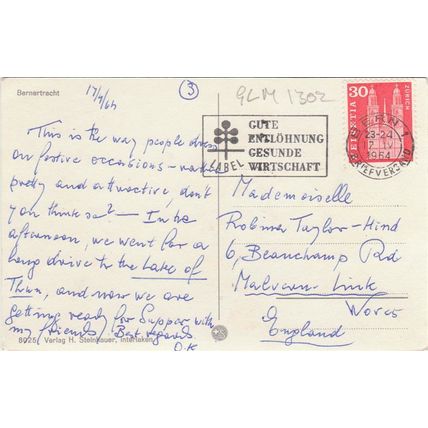 Bernertracht
17/4/64
3
GLM 1302
This is the way people dress
on festive occasions –
pretty and attractive, don't
you think so? – In the
afternoon, we went for a
long drive to the Lake of
Thun, and now we are
getting ready for Supper with
my friends! Best regards
O.K
8025 Verlag H. Steinhauer, Interlaken
LABEL
GUTE
ENTLÖHNUNG
GESUNDE
WIRTSCHAFT
30
HELVETIA
ZÜRICH
BERN 1
23-24
1964
BRIEFVERSAND
Mademoiselle
Robina Taylor-Hind
6, Beauchamp Rd
Malvern-Link
Worcs
England